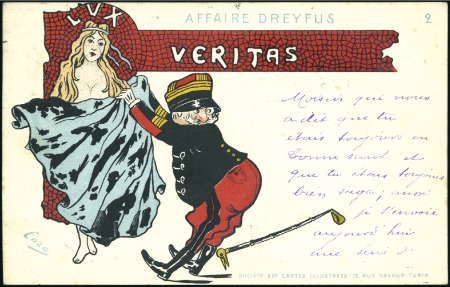 AFFAIRE DREYFUS 2
LUX
VERITAS
qui nous
a dit que tu
étais toujours en
bonne santé et
que tu étais toujours
bien sage; aussi
je t'envoie
aujourd'hui
une série de
SOCIÉTÉ EDIT CARTES ILLUSTRÉES-12, RUE CAVOUR-TURIN